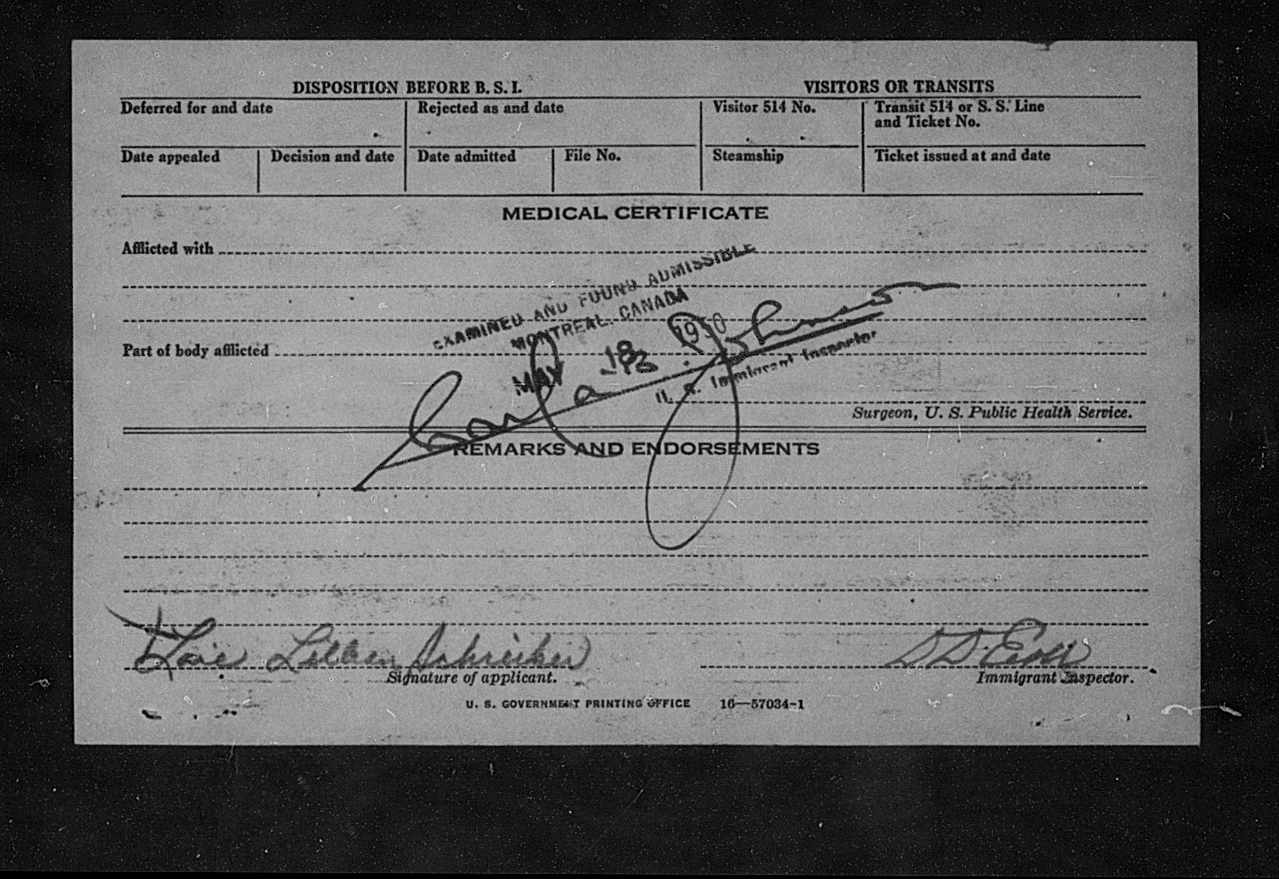 DISPOSITION BEFORE B. S. I.
VISITORS OR TRANSITS
Deferred for and date
Rejected as and date
Visitor 514 No.
Transit 514 or S. S. Line
and Ticket No.
Date appealed
Decision and date
Date admitted
File No.
Steamship
Ticket issued at and date
MEDICAL CERTIFICATE
Afflicted with
EXAMINED AND FOUND ADMISSIBLE
MONTREAL, CANADA
MAY 18 19
Part of body afflicted
U. S. Immigrant Inspector
Johnson
Surgeon, U. S. Public Health Service.
REMARKS AND ENDORSEMENTS
Schreiber
Signature of applicant.
Immigrant Inspector.
U. S. GOVERNMENT PRINTING OFFICE 16—57034-1